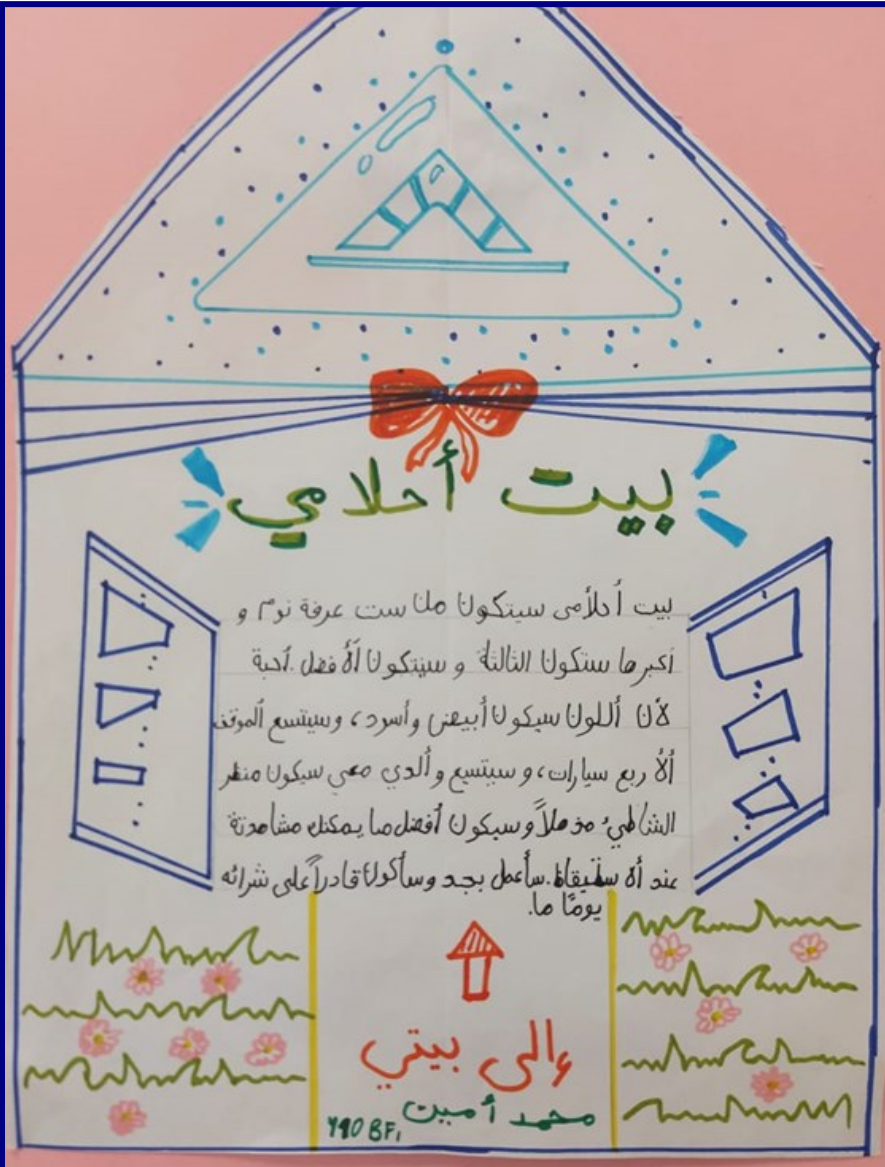 بيت أحلامي
بيت أحلأمي سيتكون من ست عرفة نوم و
أكبرها ستكون الثالثة و سيتكون ألأفضل أحبة
لأن أللون سيكون أبيض وأسود، وسيتسع ألموقف
ألأ ربع سيارات، و سيتسع وألدي معي سيكون منظر
الشاطئ مذهلاً وسيكون أفضل ما يمكنك مشاهدتة
عند سأعمل بجد وسأكون قادراً على شرائه
يومًا ما.
إلى بيتي
محمد أمين
Y10 BF1